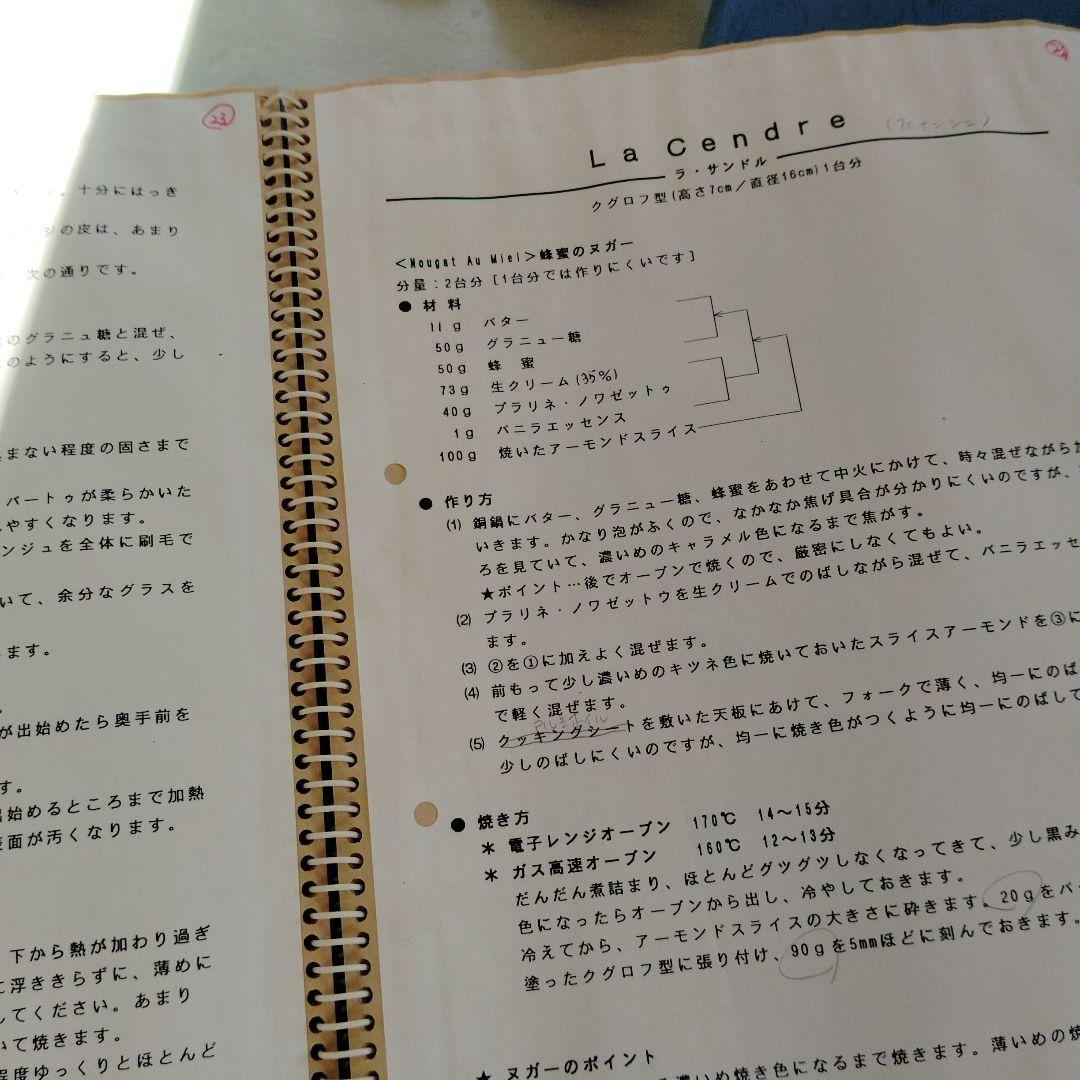 ㉓
十分にはっき
の皮は、あまり
次の通りです。
のグラニュ糖と混ぜ、
のようにすると、少し
まない程度の固さまで
バートゥが柔らかいた
やすくなります。
ンジュを全体に刷毛で
いて、余分なグラスを
ます。
が出始めたら奥手前を
す。
出始めるところまで加熱
表面が汚くなります。
下から熱が加わり過ぎ
に浮ききらずに、薄めに
してください。あまり
いて焼きます。
程度ゆっくりとほとんど
La Cendre
ラ・サンドル
クグロフ型(高さ7cm／直径16cm)1台分
＜Nougat Au Miel＞蜂蜜のヌガー
分量：2台分［1台分では作りにくいです］
● 材 料
11 g バター
50g グラニュー糖
50g 蜂 蜜
73g 生クリーム(35%)
40g プラリネ・ノワゼットゥ
1g バニラエッセンス
100g 焼いたアーモンドスライス
● 作り方
(1) 銅鍋にバター、グラニュー糖、蜂蜜をあわせて中火にかけて、時々混ぜながら
いきます。かなり泡がふくので、なかなか焦げ具合が分かりにくいのですが、
ろを見ていて、濃いめのキャラメル色になるまで焦がす。
★ポイント…後でオーブンで焼くので、厳密にしなくてもよい。
(2) プラリネ・ノワゼットゥを生クリームでのばしながら混ぜて、バニラエッセ
ます。
(3) ②を①に加えよく混ぜます。
(4) 前もって少し濃いめのキツネ色に焼いておいたスライスアーモンドを③に
で軽く混ぜます。
(5) クッキングシートを敷いた天板にあけて、フォークで薄く、均一にのば
少しのばしにくいのですが、均一に焼き色がつくように均一にのばして
● 焼き方
＊ 電子レンジオーブン 170℃ 14〜15分
＊ ガス高速オーブン 160℃ 12〜13分
だんだん煮詰まり、ほとんどグツグツしなくなってきて、少し黒み
色になったらオーブンから出し、冷やしておきます。
冷えてから、アーモンドスライスの大きさに砕きます。20gをバ
塗ったクグロフ型に張り付け、90gを5mmほどに刻んでおきます。
★ ヌガーのポイント
濃い焼き色になるまで焼きます。薄いめの焼